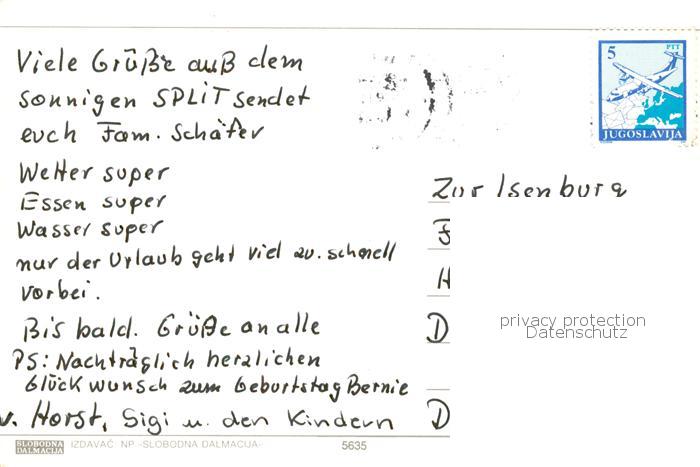 Viele Grüße auß dem
sonnigen SPLIT sendet
euch Fam. Schäfer
Wetter super
Essen super
Wasser super
nur der Urlaub geht viel zu schnell
vorbei.
Bis bald. Grüße an alle
PS: Nachträglich herzlichen
Glückwunsch zum Geburtstag Bernie
v. Horst, Sigi u. den Kindern
SLOBODNA
DALMACIJA
IZDAVAČ: NP «SLOBODNA DALMACIJA»
5635
5
PTT
JUGOSLAVIJA
Zur Isenburg
F
H
D
D
privacy protection
Datenschutz